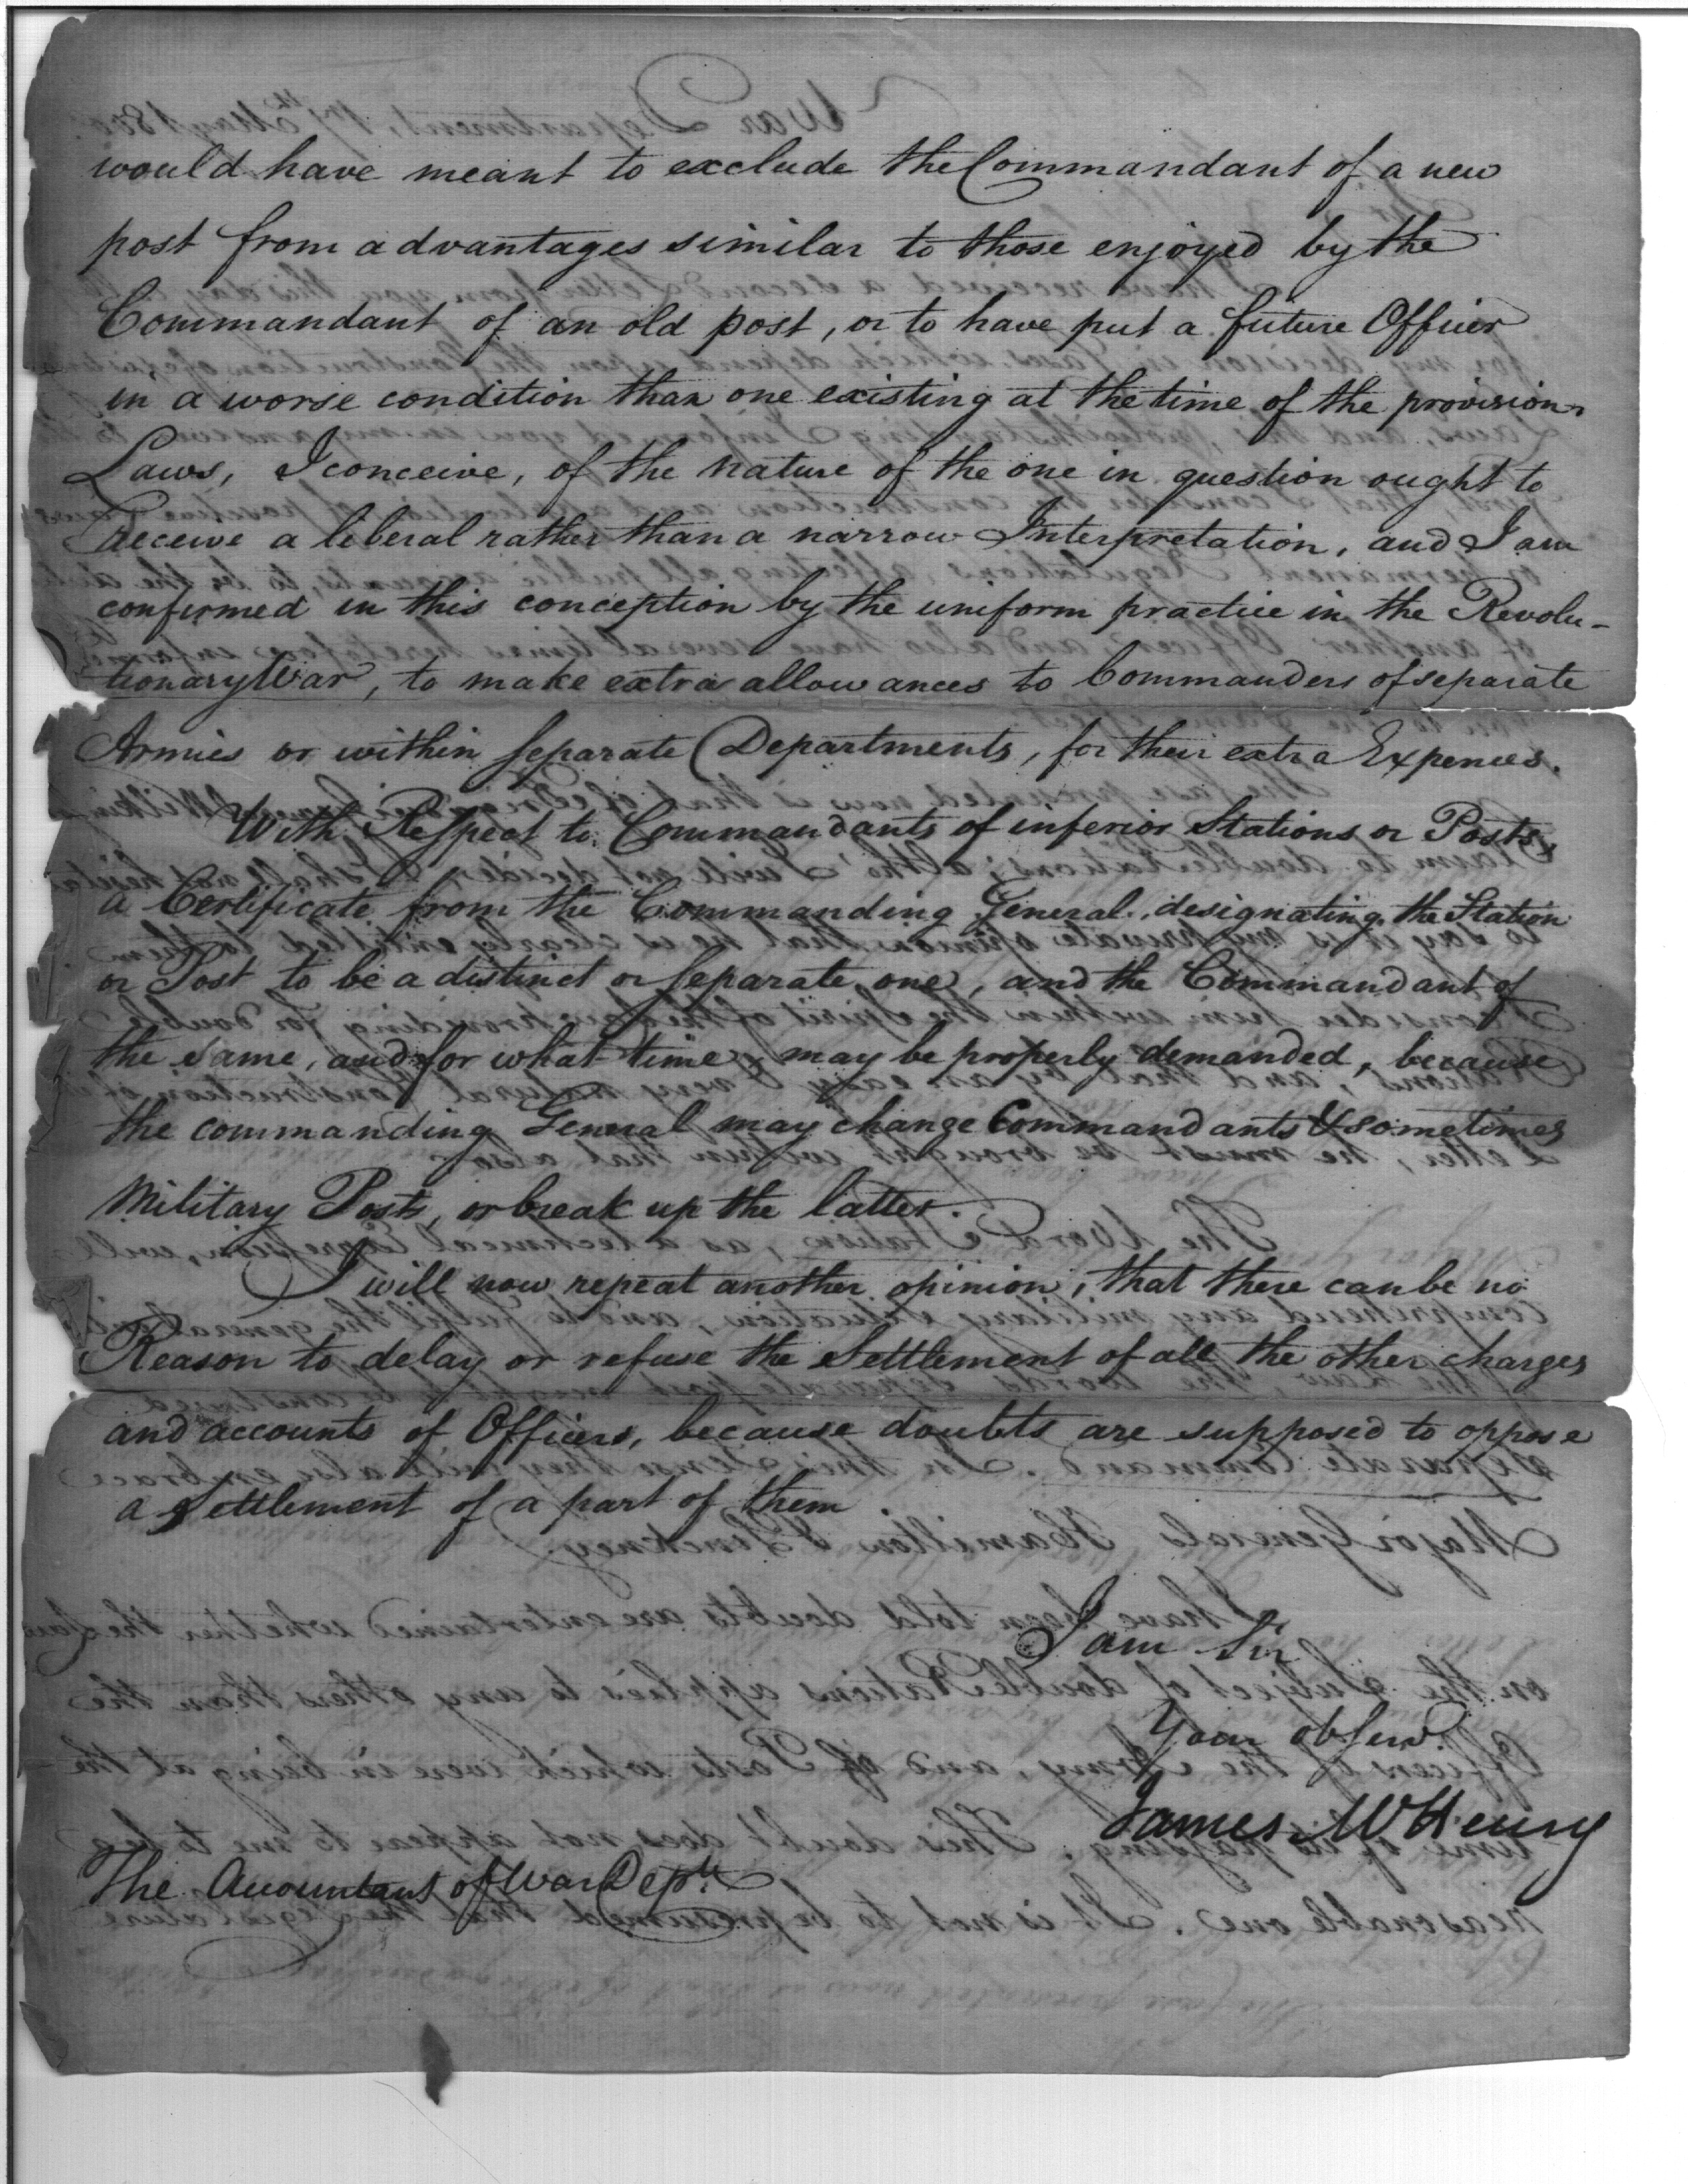 would have meant to exclude the Commandant of a new
post from advantages similar to those enjoyed by the
Commandant of an old post, or to have put a future Officer
in a worse condition than one existing at the time of the provision.
Laws, I conceive, of the nature of the one in question ought to
receive a liberal rather than a narrow Interpretation, and I am
confirmed in this conception by the uniform practice in the Revolu-
tionary War, to make extra allowances to Commanders of separate
Armies or within separate Departments, for their extra Expences.
With Respect to Commandants of inferior Stations or Posts,
a Certificate from the Commanding General, designating the Station
or Post to be a distinct or separate one, and the Commandant of
the same, and for what time, may be properly demanded, because
the commanding General may change Commandants & sometimes
Military Posts, or break up the latter.
I will now repeat another opinion, that there can be no
Reason to delay or refuse the Settlement of all the other charges
and accounts of Officers, because doubts are supposed to oppose
a Settlement of a part of them
I am Sir
Your ob Servt.
James McHenry
The Accountant of War Dept.